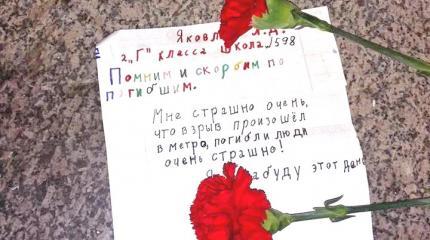 2 "Г" класса школа 1598
Помним и скорбим по
погибшим.
Мне страшно очень,
что взрыв произошёл
в метро, погибли люди
очень страшно!
этот день